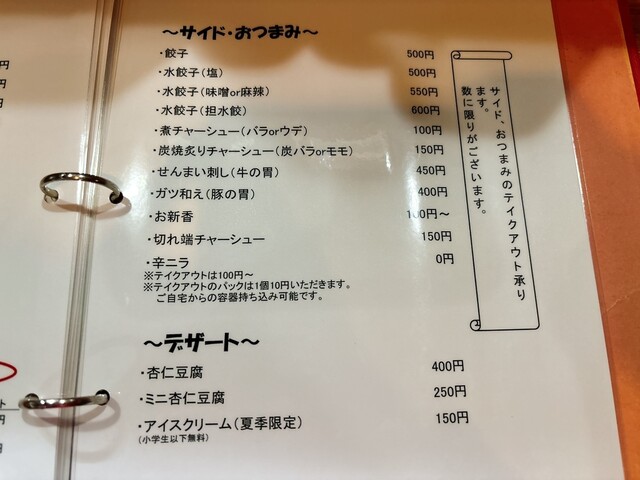 ～サイド・おつまみ～
・餃子 500円
・水餃子（塩） 500円
・水餃子（味噌or麻辣） 550円
・水餃子（担水餃） 600円
・煮チャーシュー（バラorウデ） 100円
・炭焼炙りチャーシュー（炭バラorモモ） 150円
・せんまい刺し（牛の胃） 450円
・ガツ和え（豚の胃） 400円
・お新香 100円～
・切れ端チャーシュー 150円
・辛ニラ 0円
※テイクアウトは100円～
※テイクアウトのパックは1個10円いただきます。
ご自宅からの容器持ち込み可能です。
サイド、おつまみのテイクアウト承り
ます。
数に限りがございます。
～デザート～
・杏仁豆腐 400円
・ミニ杏仁豆腐 250円
・アイスクリーム（夏季限定） 150円
（小学生以下無料）